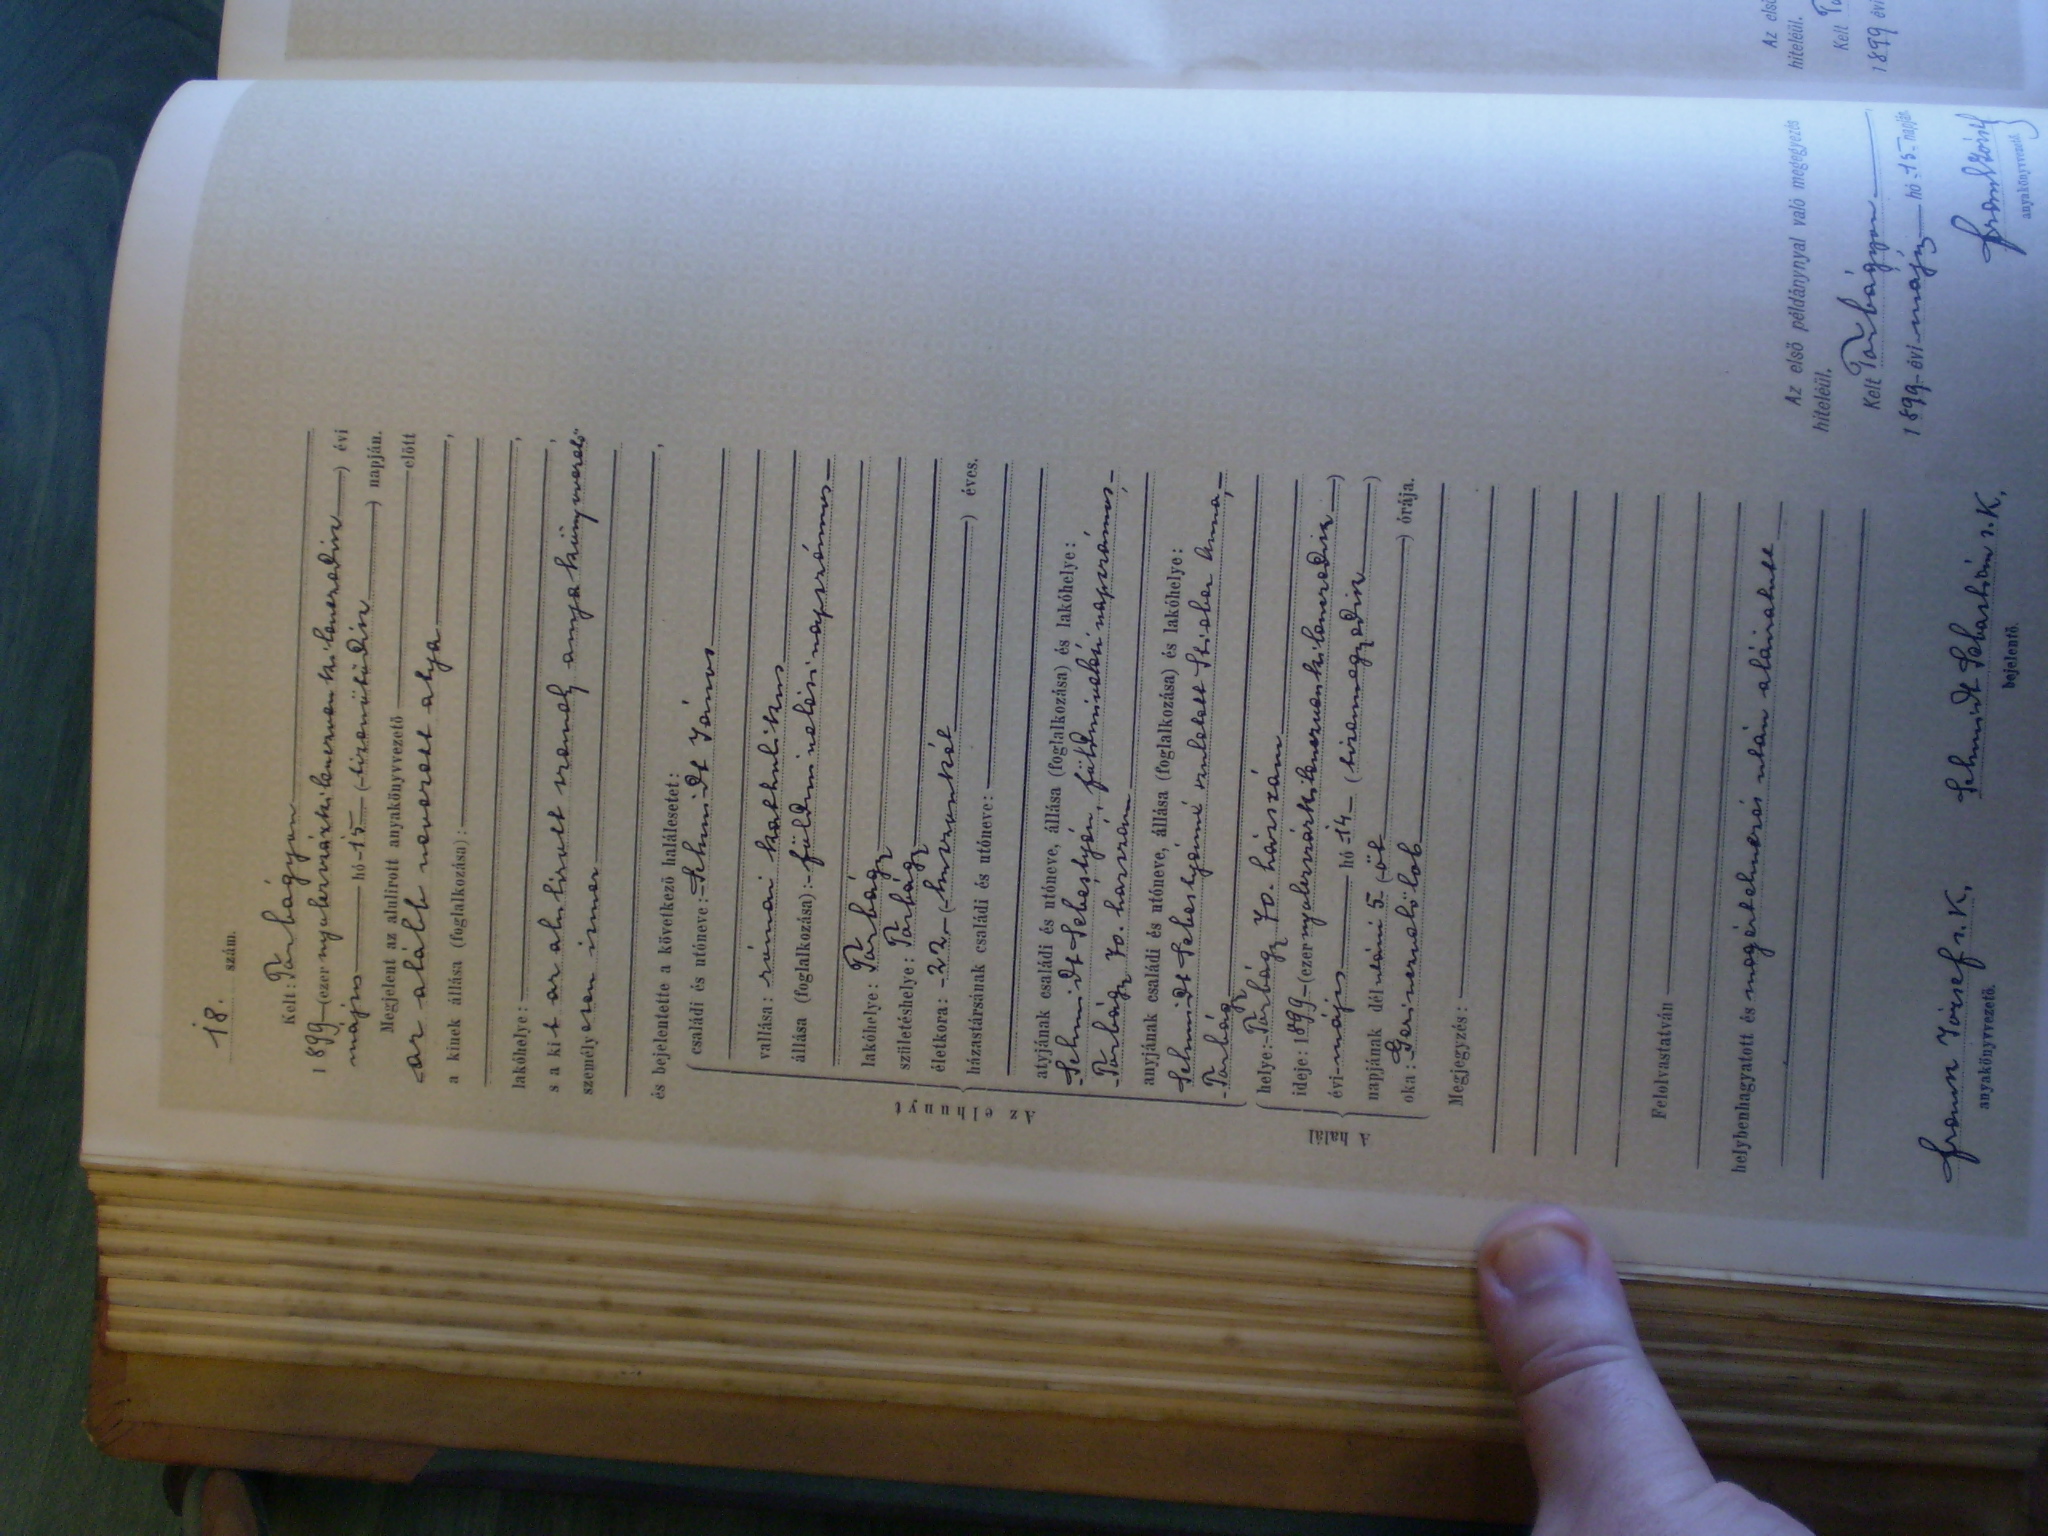 18. szám.
Kelt: Törbágyon
1899 (ezernyolczszázkilenczvenkilenczedik) évi
május hó 15 (tizenötödik) napján.
Megjelent az alulirott anyakönyvvezető előtt
az alább nevezett atyja
a kinek állása (foglalkozása):
lakóhelye:
s a ki t az alulirott
személyesen ismer
és bejelentette a következő halálesetet:
Az elhunyt
családi és utóneve: Schmidt János
vallása: római katholikus
állása (foglalkozása): földmivelési napszámos
lakóhelye: Törbágy
születéshelye: Törbágy
életkora: 22 (huszonkét) éves.
házastársának családi és utóneve:
atyjának családi és utóneve, állása (foglalkozása) és lakóhelye:
Schmidt Sebestyén, földmivelési napszámos,
Törbágy 70. házszám
anyjának családi és utóneve, állása (foglalkozása) és lakóhelye:
Schmidt Sebestyénné született Stieber Anna,
Törbágy
A halál
helye: Törbágy 70. házszám
ideje: 1899 (ezernyolczszázkilenczvenkilenczedik)
évi május hó 14 (tizennegyedik)
napjának dél utáni 5 (öt) órája.
oka: Gerinczvelőlob
Megjegyzés:
Felolvastatván
helybenhagyatott és megértelmezés után aláiratott
Schmidt Sebastián s. K.
anyakönyvvezető. bejelentő.
Az első példánynyal való megegyezés
hiteléül.
Kelt Törbágyon
1899 évi május hó 15 napján
anyakönyvvezető.
Az első
hiteléül.
Kelt
1899 évi